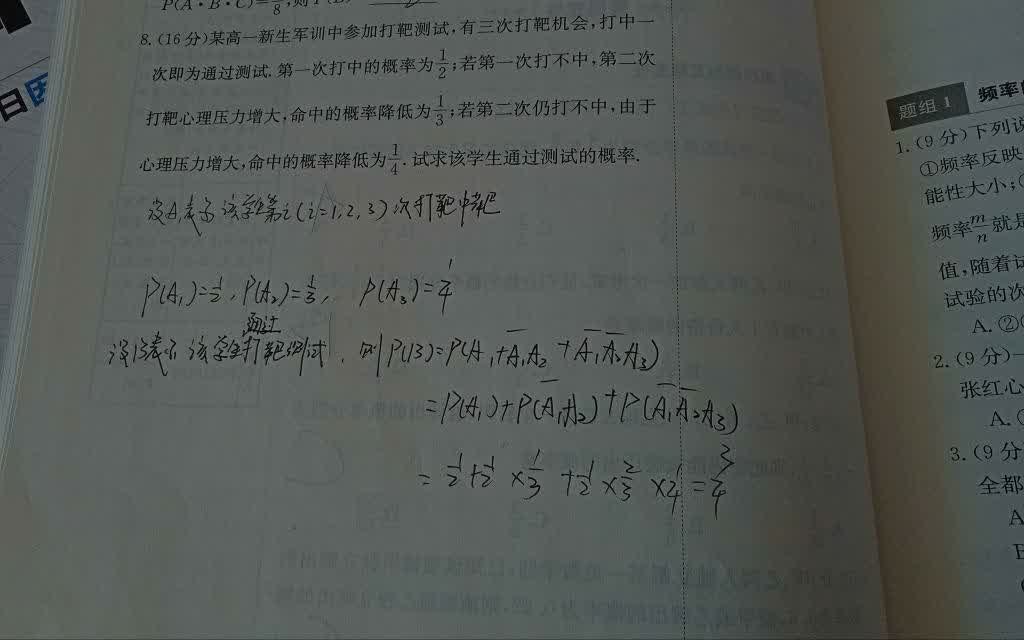 P(A·B·C)=1/8,则P(B)
8.(16分)某高一新生军训中参加打靶测试,有三次打靶机会,打中一
次即为通过测试.第一次打中的概率为1/2;若第一次打不中,第二次
打靶心理压力增大,命中的概率降低为1/3;若第二次仍打不中,由于
心理压力增大,命中的概率降低为1/4.试求该学生通过测试的概率.
设Aᵢ表示该学生第i(i=1,2,3)次打靶中靶
P(A₁)=1/2,P(A₂)=1/3, P(A₃)=1/4
通过
设B表示该学生打靶测试,则P(B)=P(A₁+A̅₁A₂+A̅₁A̅₂A₃)
=P(A₁)+P(A̅₁A₂)+P(A̅₁A̅₂A₃)
=1/2+1/2×1/3+1/2×2/3×1/4=3/4
日因
题组1 频率
1.(9分)下列说
①频率反映
能性大小;
频率m/n就是
值,随着试
试验的次
A.②
2.(9分)一
张红心
A.
3.(9分)
全都
A